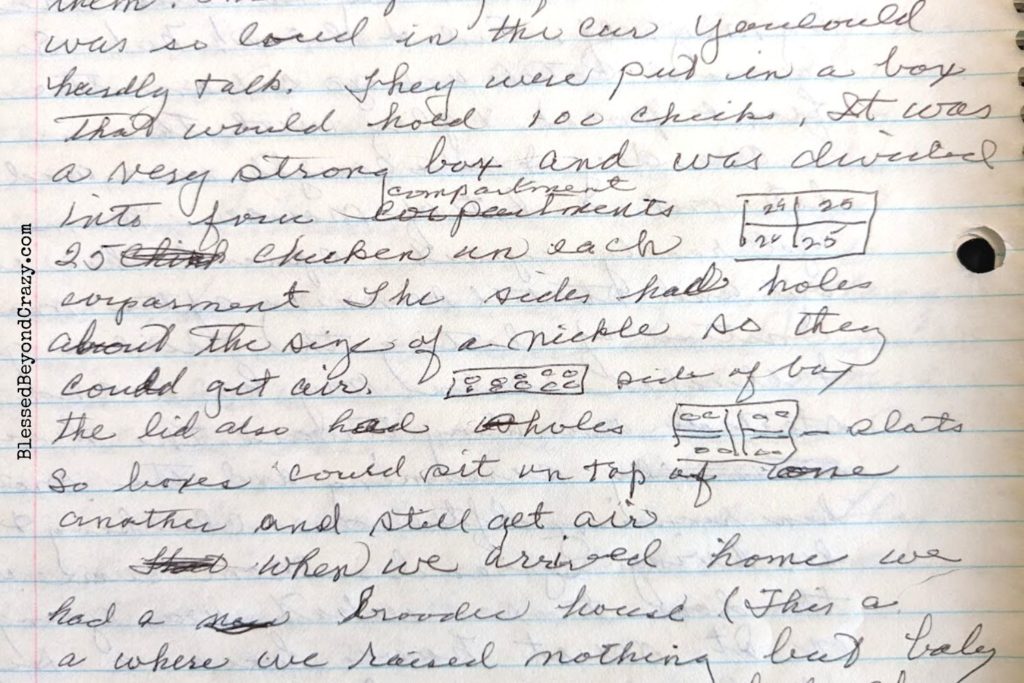 them.
was so loud in the car you could
hardly talk. They were put in a box
That would hold 100 chicks, It was
a very strong box and was divided
compartment
into four corpartments
24 25
25 chicken in each
24 25
corparment The sides had holes
about the size of a nickle so they
could get air. side of box
the lid also had holes - slats
So boxes could sit on top of one
another and still get air
that when we arrived home we
had a brooder house (This a
a where we raised nothing but baby
BlessedBeyondCrazy.com